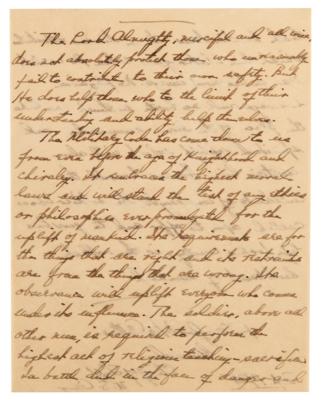 The Lord Almighty, merciful and all wise,
does not absolutely protect those who unreasonably
fail to contribute to their own safety. But
He does help those who to the limit of their
understanding and ability, help themselves.
The Military Code has come down to us
from even before the age of Knighthood and
chivalry. It embraces the highest moral
laws and will stand the test of any ethics
or philosophies ever promulgated for the
uplift of mankind. Its requirements are for
the things that are right and its restraints
are from the things that are wrong. Its
observance will uplift everyone who comes
under its influence. The soldier, above all
other men, is required to perform the
highest act of religious teaching - sacrifice.
In battle and in the face of danger and